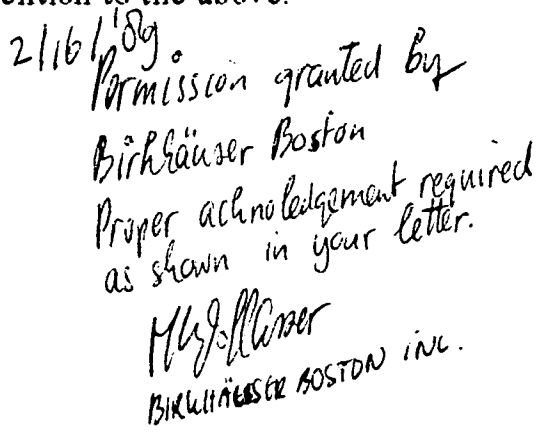 ention to the above.
2/16/'89
Permission granted by
Birkhäuser Boston
Proper acknoledgement required
as shown in your letter.
BIRKHÄUSER BOSTON INC.